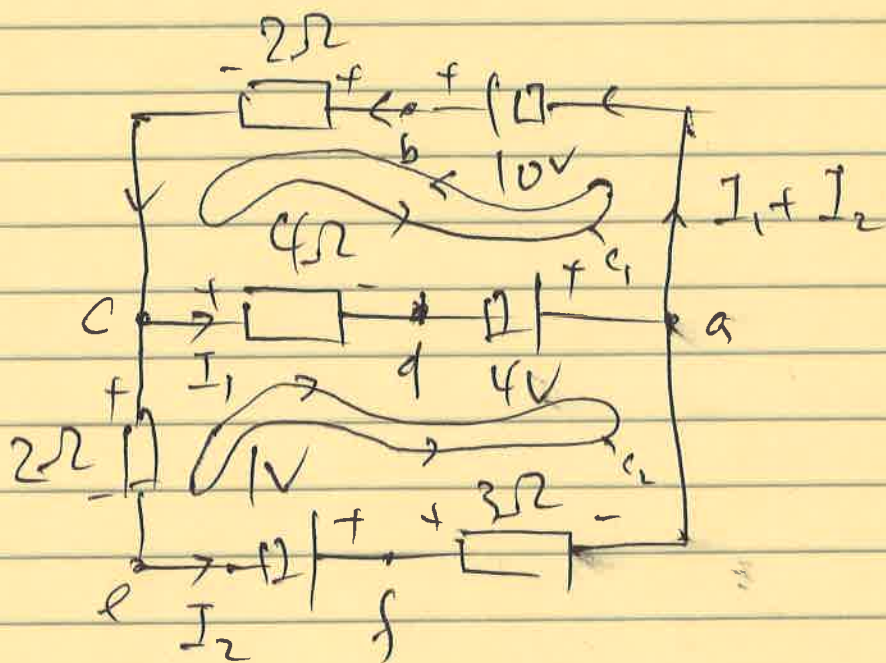 2Ω
- + +
b 10V
I₁ + I₂
4Ω c₁
C + - + a
I₁ d 4V
+
2Ω
-
1V c₂
3Ω
+ + -
e I₂ f